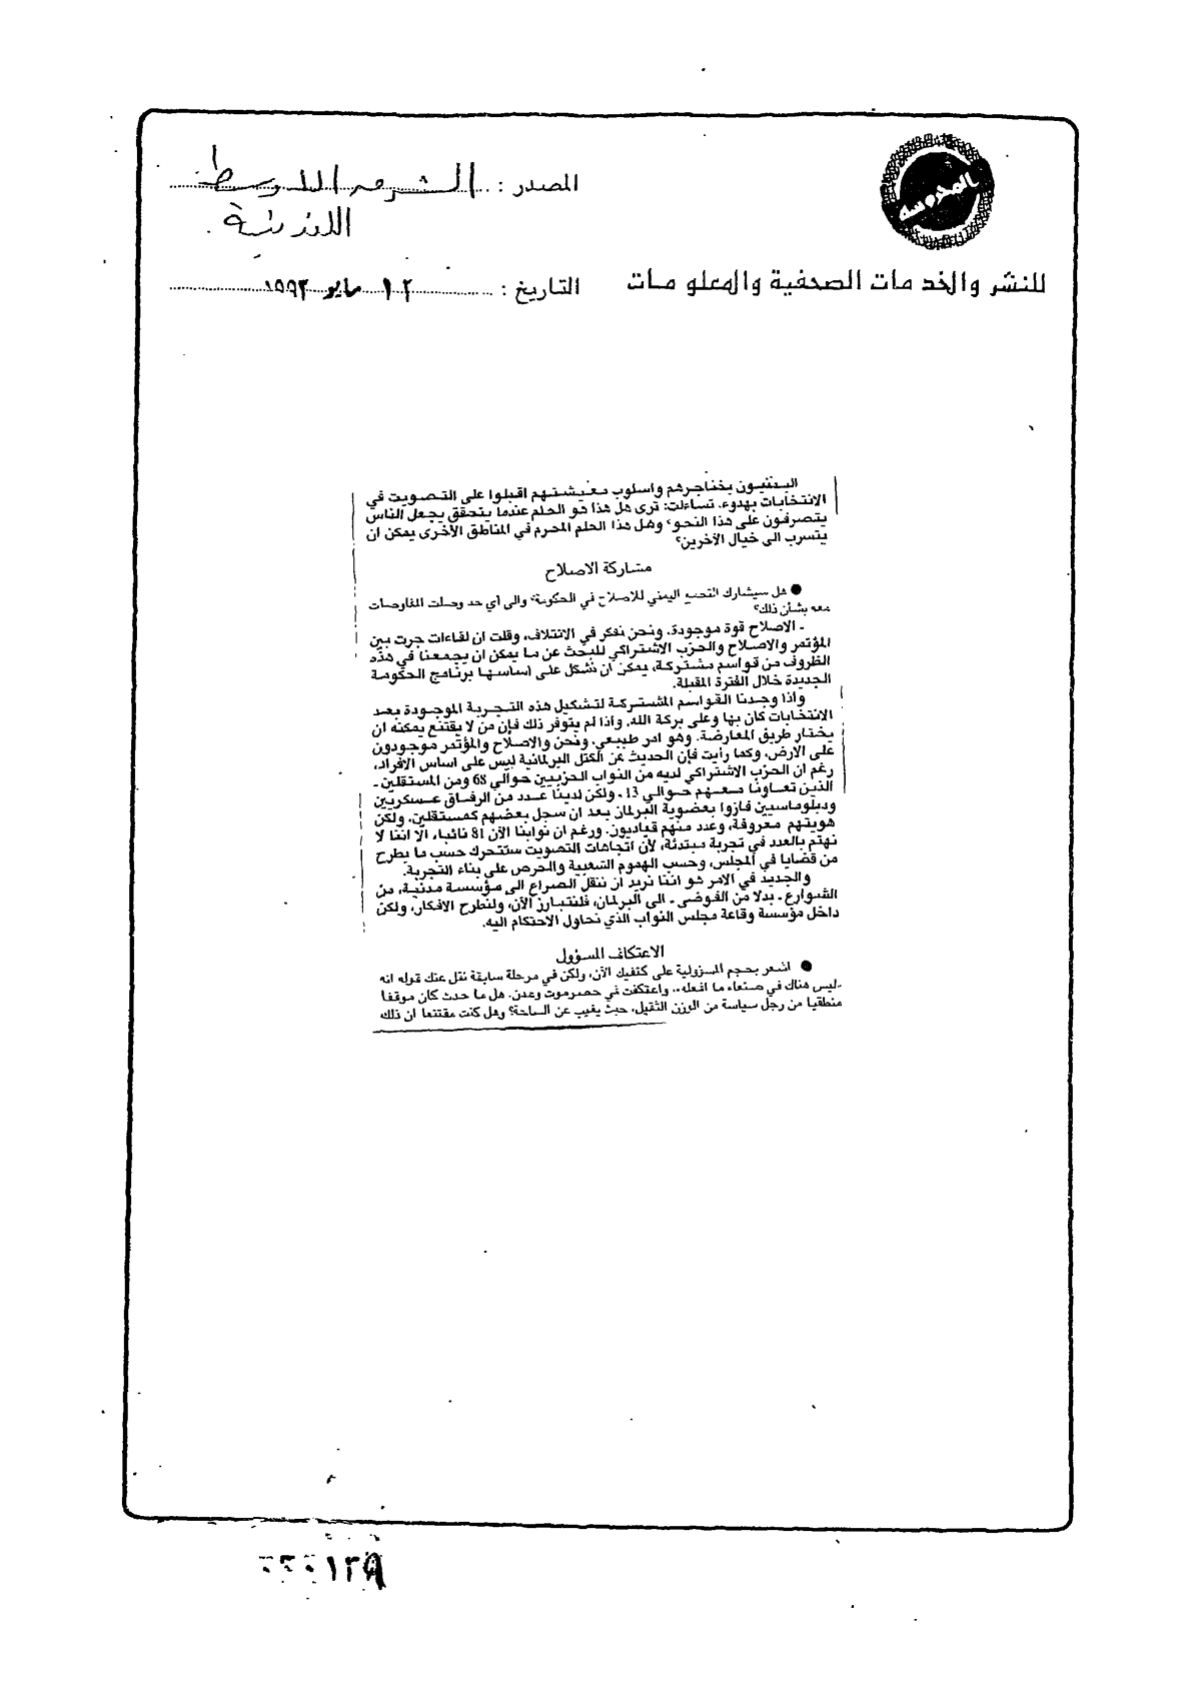 المحروسة
للنشر والخدمات الصحفية والمعلومات
المصدر : الشرق الاوسط
اللندنية
التاريخ : ١٢ مايو ١٩٩٣
اليمنيون بخناجرهم واسلوب معيشتهم اقبلوا على التصويت في
الانتخابات بهدوء. تساءلت: ترى هل هذا هو الحلم عندما يتحقق يجعل الناس
يتصرفون على هذا النحو؟ وهل هذا الحلم المحرم في المناطق الأخرى يمكن ان
يتسرب الى خيال الآخرين؟
مشاركة الاصلاح
● هل سيشارك التجمع اليمني للاصلاح في الحكومة؟ والى أي حد وصلت المفاوضات
معه بشأن ذلك؟
ـ الاصلاح قوة موجودة، ونحن نفكر في الائتلاف، وقلت ان لقاءات جرت بين
المؤتمر والاصلاح والحزب الاشتراكي للبحث عن ما يمكن ان يجمعنا في هذه
الظروف من قواسم مشتركة، يمكن ان نشكل على اساسها برنامج الحكومة
الجديدة خلال الفترة المقبلة.
واذا وجدنا القواسم المشتركة لتشكيل هذه التجربة الموجودة بعد
الانتخابات كان بها وعلى بركة الله، واذا لم يتوفر ذلك فإن من لا يقتنع يمكنه ان
يختار طريق المعارضة. وهو امر طبيعي. ونحن والاصلاح والمؤتمر موجودون
على الارض، وكما رأيت فإن الحديث عن الكتل البرلمانية ليس على اساس الافراد،
رغم ان الحزب الاشتراكي لديه من النواب الحزبيين حوالي 68 ومن المستقلين ـ
الذين تعاونا معهم حوالي 13 ـ ولكن لدينا عدد من الرفاق عسكريين
ودبلوماسيين فازوا بعضوية البرلمان بعد ان سجل بعضهم كمستقلين، ولكن
هويتهم معروفة، وعدد منهم قياديون. ورغم ان نوابنا الآن 81 نائبا، الا اننا لا
نهتم بالعدد في تجربة مبتدئة، لأن اتجاهات التصويت ستتحرك حسب ما يطرح
من قضايا في المجلس، وحسب الهموم الشعبية والحرص على بناء التجربة.
والجديد في الامر هو اننا نريد ان ننقل الصراع الى مؤسسة مدنية، من
الشوارع ـ بدلا من الفوضى ـ الى البرلمان، فلنتبارز الآن، ولنطرح الافكار، ولكن
داخل مؤسسة وقاعة مجلس النواب الذي نحاول الاحتكام اليه.
الاعتكاف المسؤول
● اشعر بحجم المسؤولية على كتفيك الآن، ولكن في مرحلة سابقة نقل عنك قوله انه
ـليس هناك في صنعاء ما افعله.. واعتكفت في حضرموت وعدن. هل ما حدث كان موقفا
منطقيا من رجل سياسة من الوزن الثقيل، حيث يغيب عن الساحة؟ وهل كنت مقتنعا ان ذلك